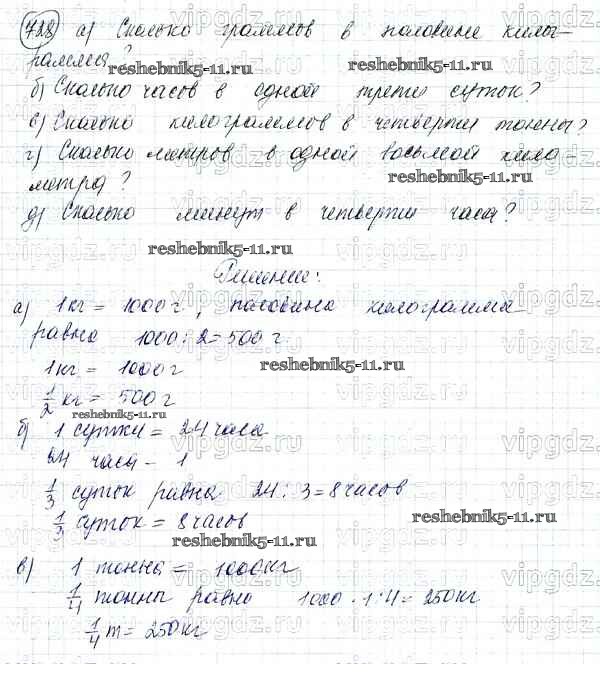 728 а) Сколько граммов в половине кило-
грамма?
reshebnik5-11.ru
б) Сколько часов в одной трети суток?
в) Сколько килограммов в четверти тонны?
г) Сколько метров в одной восьмой кило-
метра?
reshebnik5-11.ru
д) Сколько минут в четверти часа?
reshebnik5-11.ru
Решение:
а) 1кг = 1000г, половина килограмма
равна 1000 : 2 = 500 г.
1кг = 1000г
reshebnik5-11.ru
1/2 кг = 500г
reshebnik5-11.ru
б) 1 сутки = 24 часа
24 часа - 1
1/3 суток равна 24 : 3 = 8 часов
1/3 суток = 8 часов
reshebnik5-11.ru
reshebnik5-11.ru
в) 1 тонна = 1000кг
1/4 тонны равно 1000 · 1 : 4 = 250кг
1/4 т = 250кг
reshebnik5-11.ru
vipgdz.ru